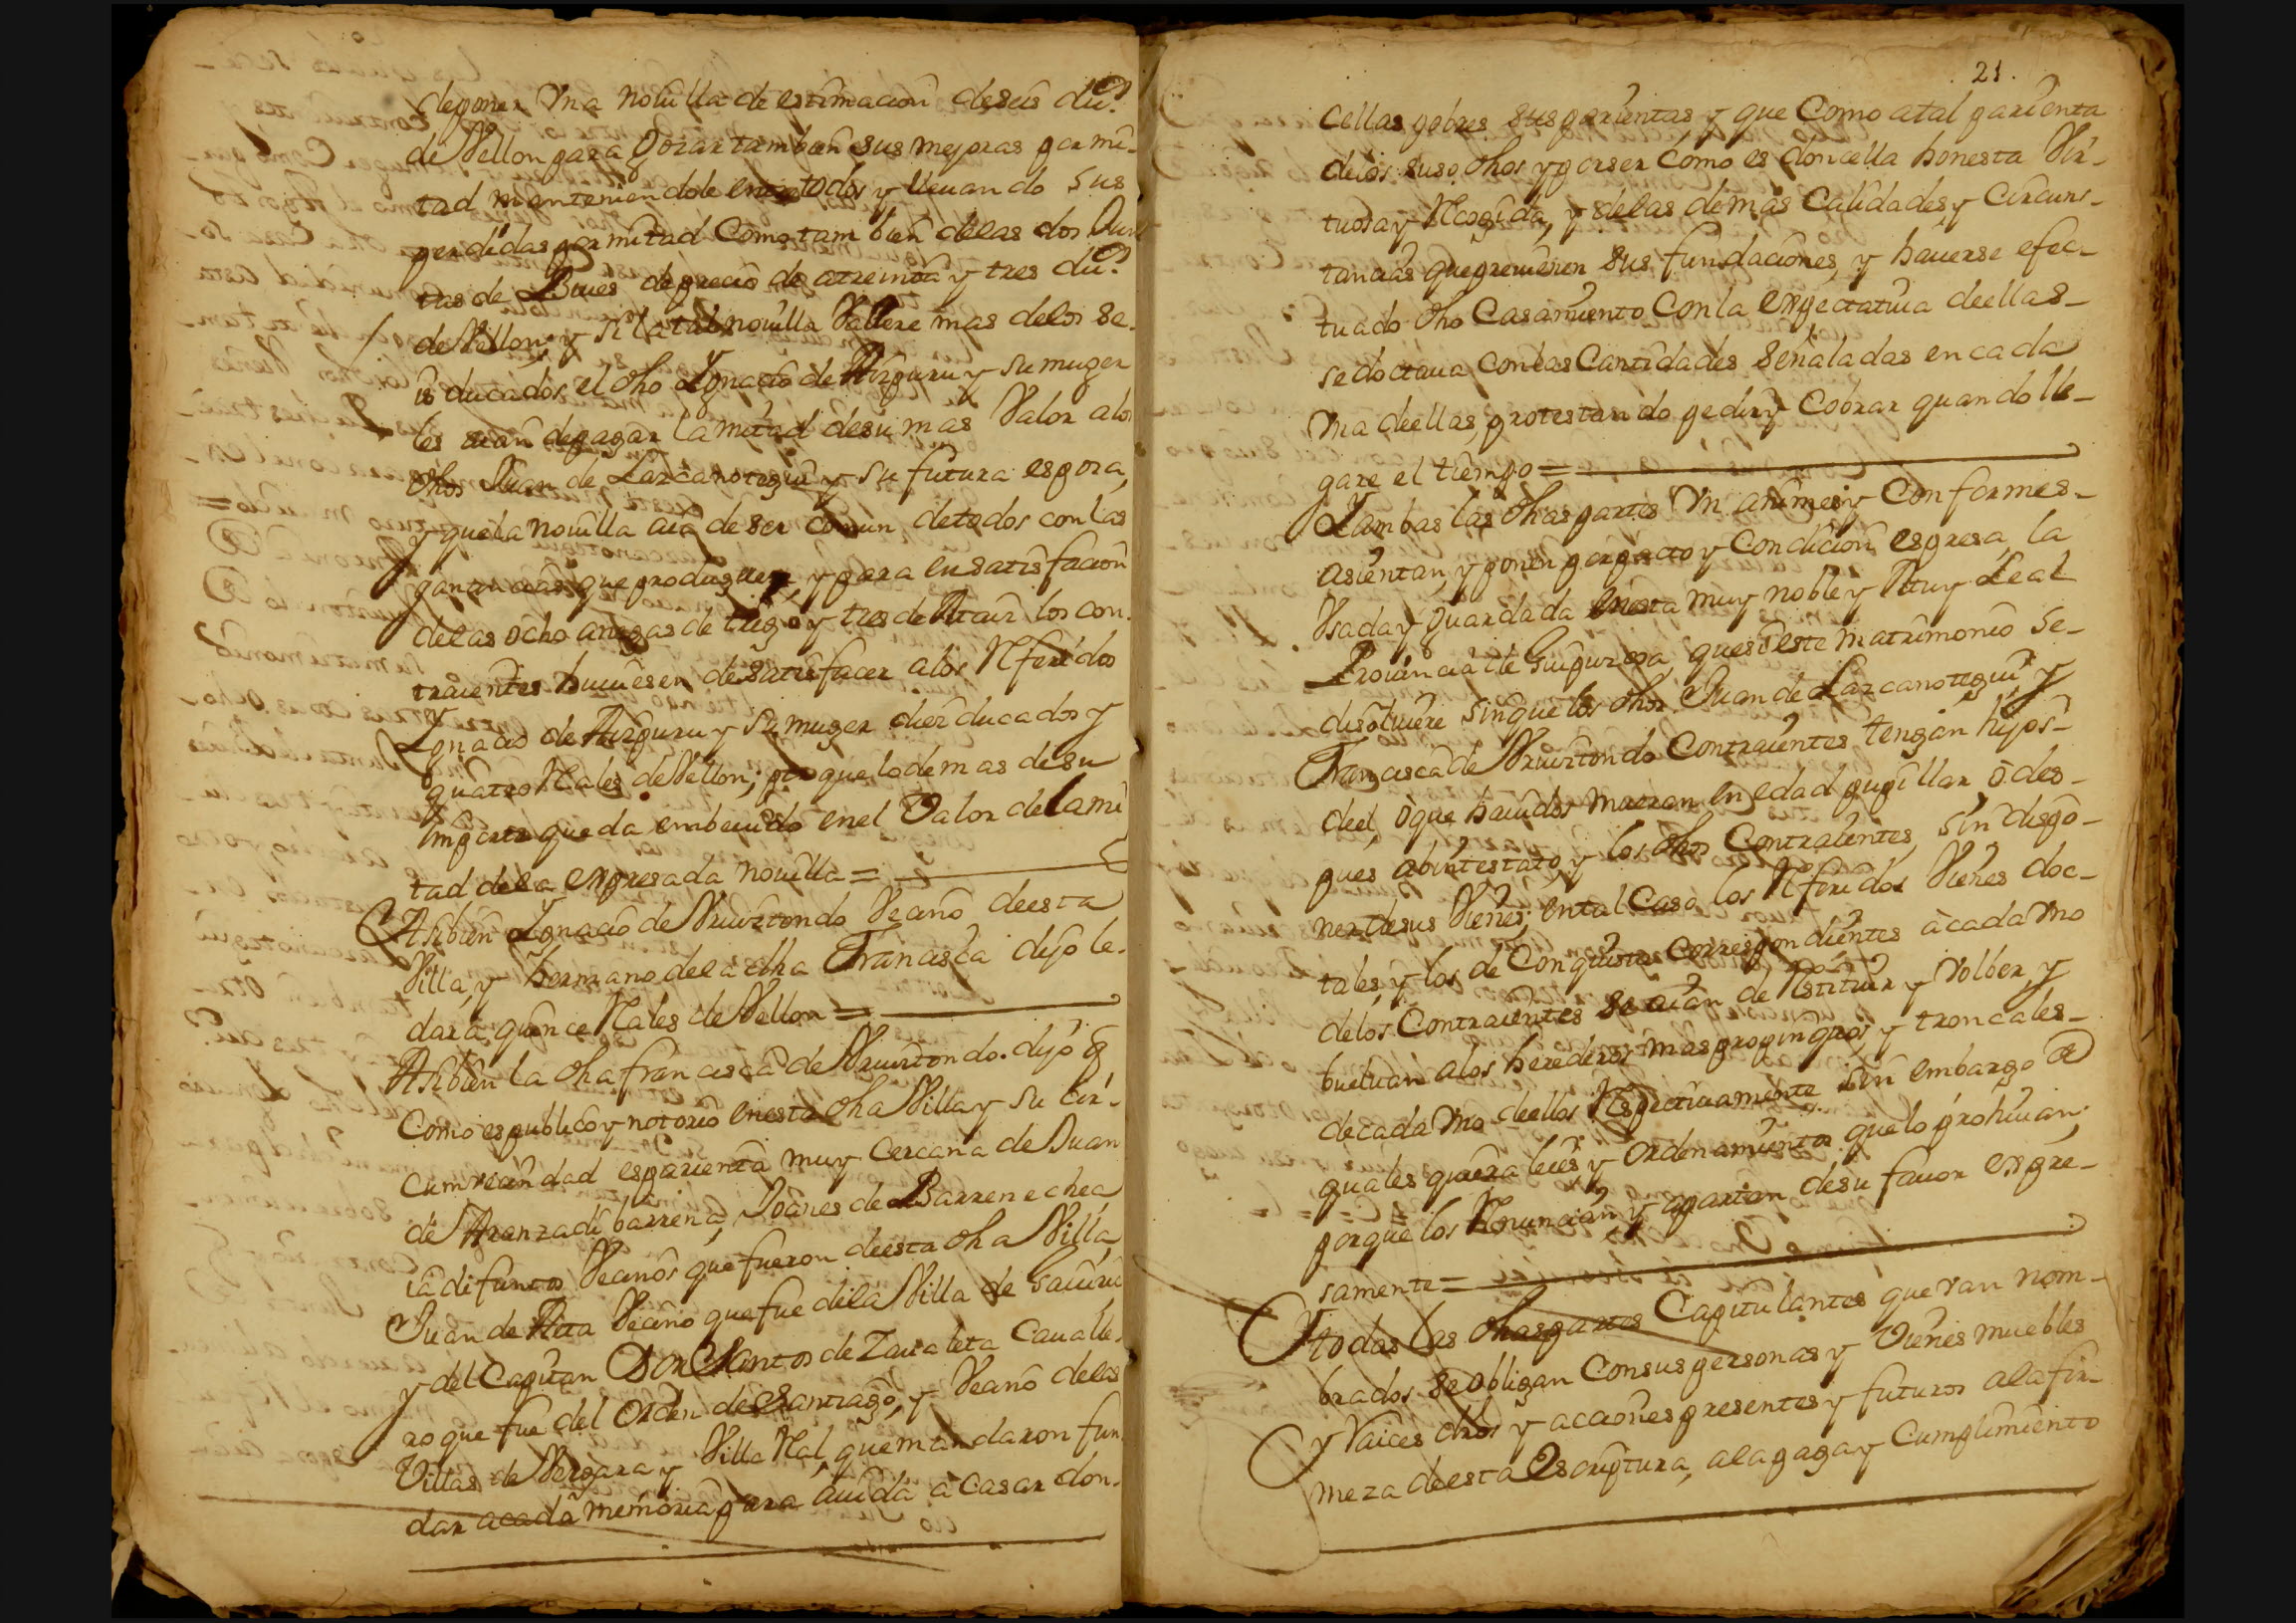 deponer Vna nouilla de estimacion deseis du.os
de Vellon para Gozar tambien sus mejoras por mi-
tad manteniendole entre todos y lleuando sus
perdidas por mitad Como tambien delas dos Jun
tas de Bueies de precio de atreinta y tres du.os
de Vellon; y si la tal nouilla Valiere mas delos se-
is ducados el dho Ygnacio de Aizpuru y su muger
les aian de pagar la mitad desu mas Valor alos
dhos Juan de Lazcanotegui y su futura esposa,
y que la nouilla aia de ser comun de todos con las
ganancias que produguere, y para en satisfacion
delas ocho anegas de trigo y tres de Maiz los con-
traientes huuiesen de satisfacer alos Rferidos
Ygnacio de Aizpuru y su muger diez ducados y
quatro Rales de Vellon; porque lo demas desu
Importe queda embeuido en el Valor dela mi
tad dela expresada nouilla =
Asibien Ygnacio de Vruiztondo Vecino deesta
Villa, y hermano dela dha Francisca dijo le-
dara quince Rales de Vellon =
Asibien la dha francisca de Vruiztondo dijo q
Como es publico y notorio enesta dha Villa y su cir-
cumvecindad es parienta muy cercana de Juan
de Aranzadibarrena, Joanes de Barrenechea
ia difuntos Vecinos que fueron deesta dha Villa,
Juan de Aeta Vecino que fue dela Villa de Gauiria
y del Capitan Don Santos de Zaualeta Cauалle-
ro que fue del Orden de Santiago, y Vecino delas
Villas de Vergara y Villa Ral, que mandaron fun
dar acada memoria para aiuda à casar don-
21.
cellas pobres sus parientas y que Como atal parienta
delos suso dhos y por ser como es doncella honesta Vir-
tuosa y Rcogida, y delas demas Calidades y Circuns-
tancias que preuienen sus fundaciones, y hauerse efec-
tuado dho Casamiento Con la expectatiua deellas-
se doctaua con las Cantidades señaladas en cada
Vna deellas, protestando pedir y Cobrar quando lle-
gare el tiempo =
Y ambas las dhas partes Vnanimes y Conformes-
asientan y ponen por pacto y Condicion espresa, la
Vsada y Guardada enesta muy noble y Muy Leal
Prouincia de Guipuzcoa, que si este matrimonio se-
disoluiere sin que los dhos Juan de Lazcanotegui y
Francisca de Vruiztondo Contraientes tengan hijos-
deel, ò que hauidos mueran en edad pupillar, ò des-
pues abintestato, y los dhos Contraientes, sin dispo-
ner desus Vienes; en tal Caso, los Rferidos Vienes doc-
tales, y los de Conquista correspondientes à cada Vno
delos Contraientes se aian de Rstituir y Volber, y
bueluan alos herederos mas propinquos, y troncales-
decada Vno deellos Rspectiuamente sin embargo de
quales quiera leies y Ordenamientos que lo prohiuan;
porque los Rnuncian, y apartan desu fauor expre-
samente =
Y todas las dhas partes Capitulantes que van nom-
brados se obligan Consus personas y Vienes muebles
y Raices dros y acciones presentes y futuros ala fir-
meza deesta Escriptura, ala paga y Cumplimiento